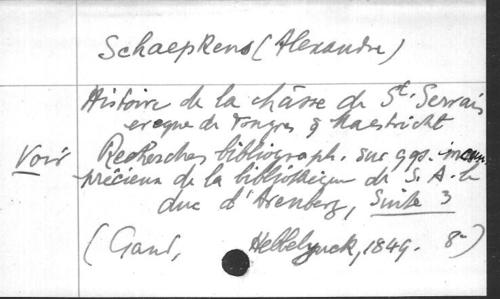 Schaepkens (Alexandre)
Histoire de la châsse de St. Servais
évêque de Tongres & Maestricht
Voir Recherches bibliograph. sur qqs. incun.
précieux de la bibliothèque de S. A. le
duc d'Arenberg, Suite 3
(Gand, Hebbelynck, 1849. 8°)